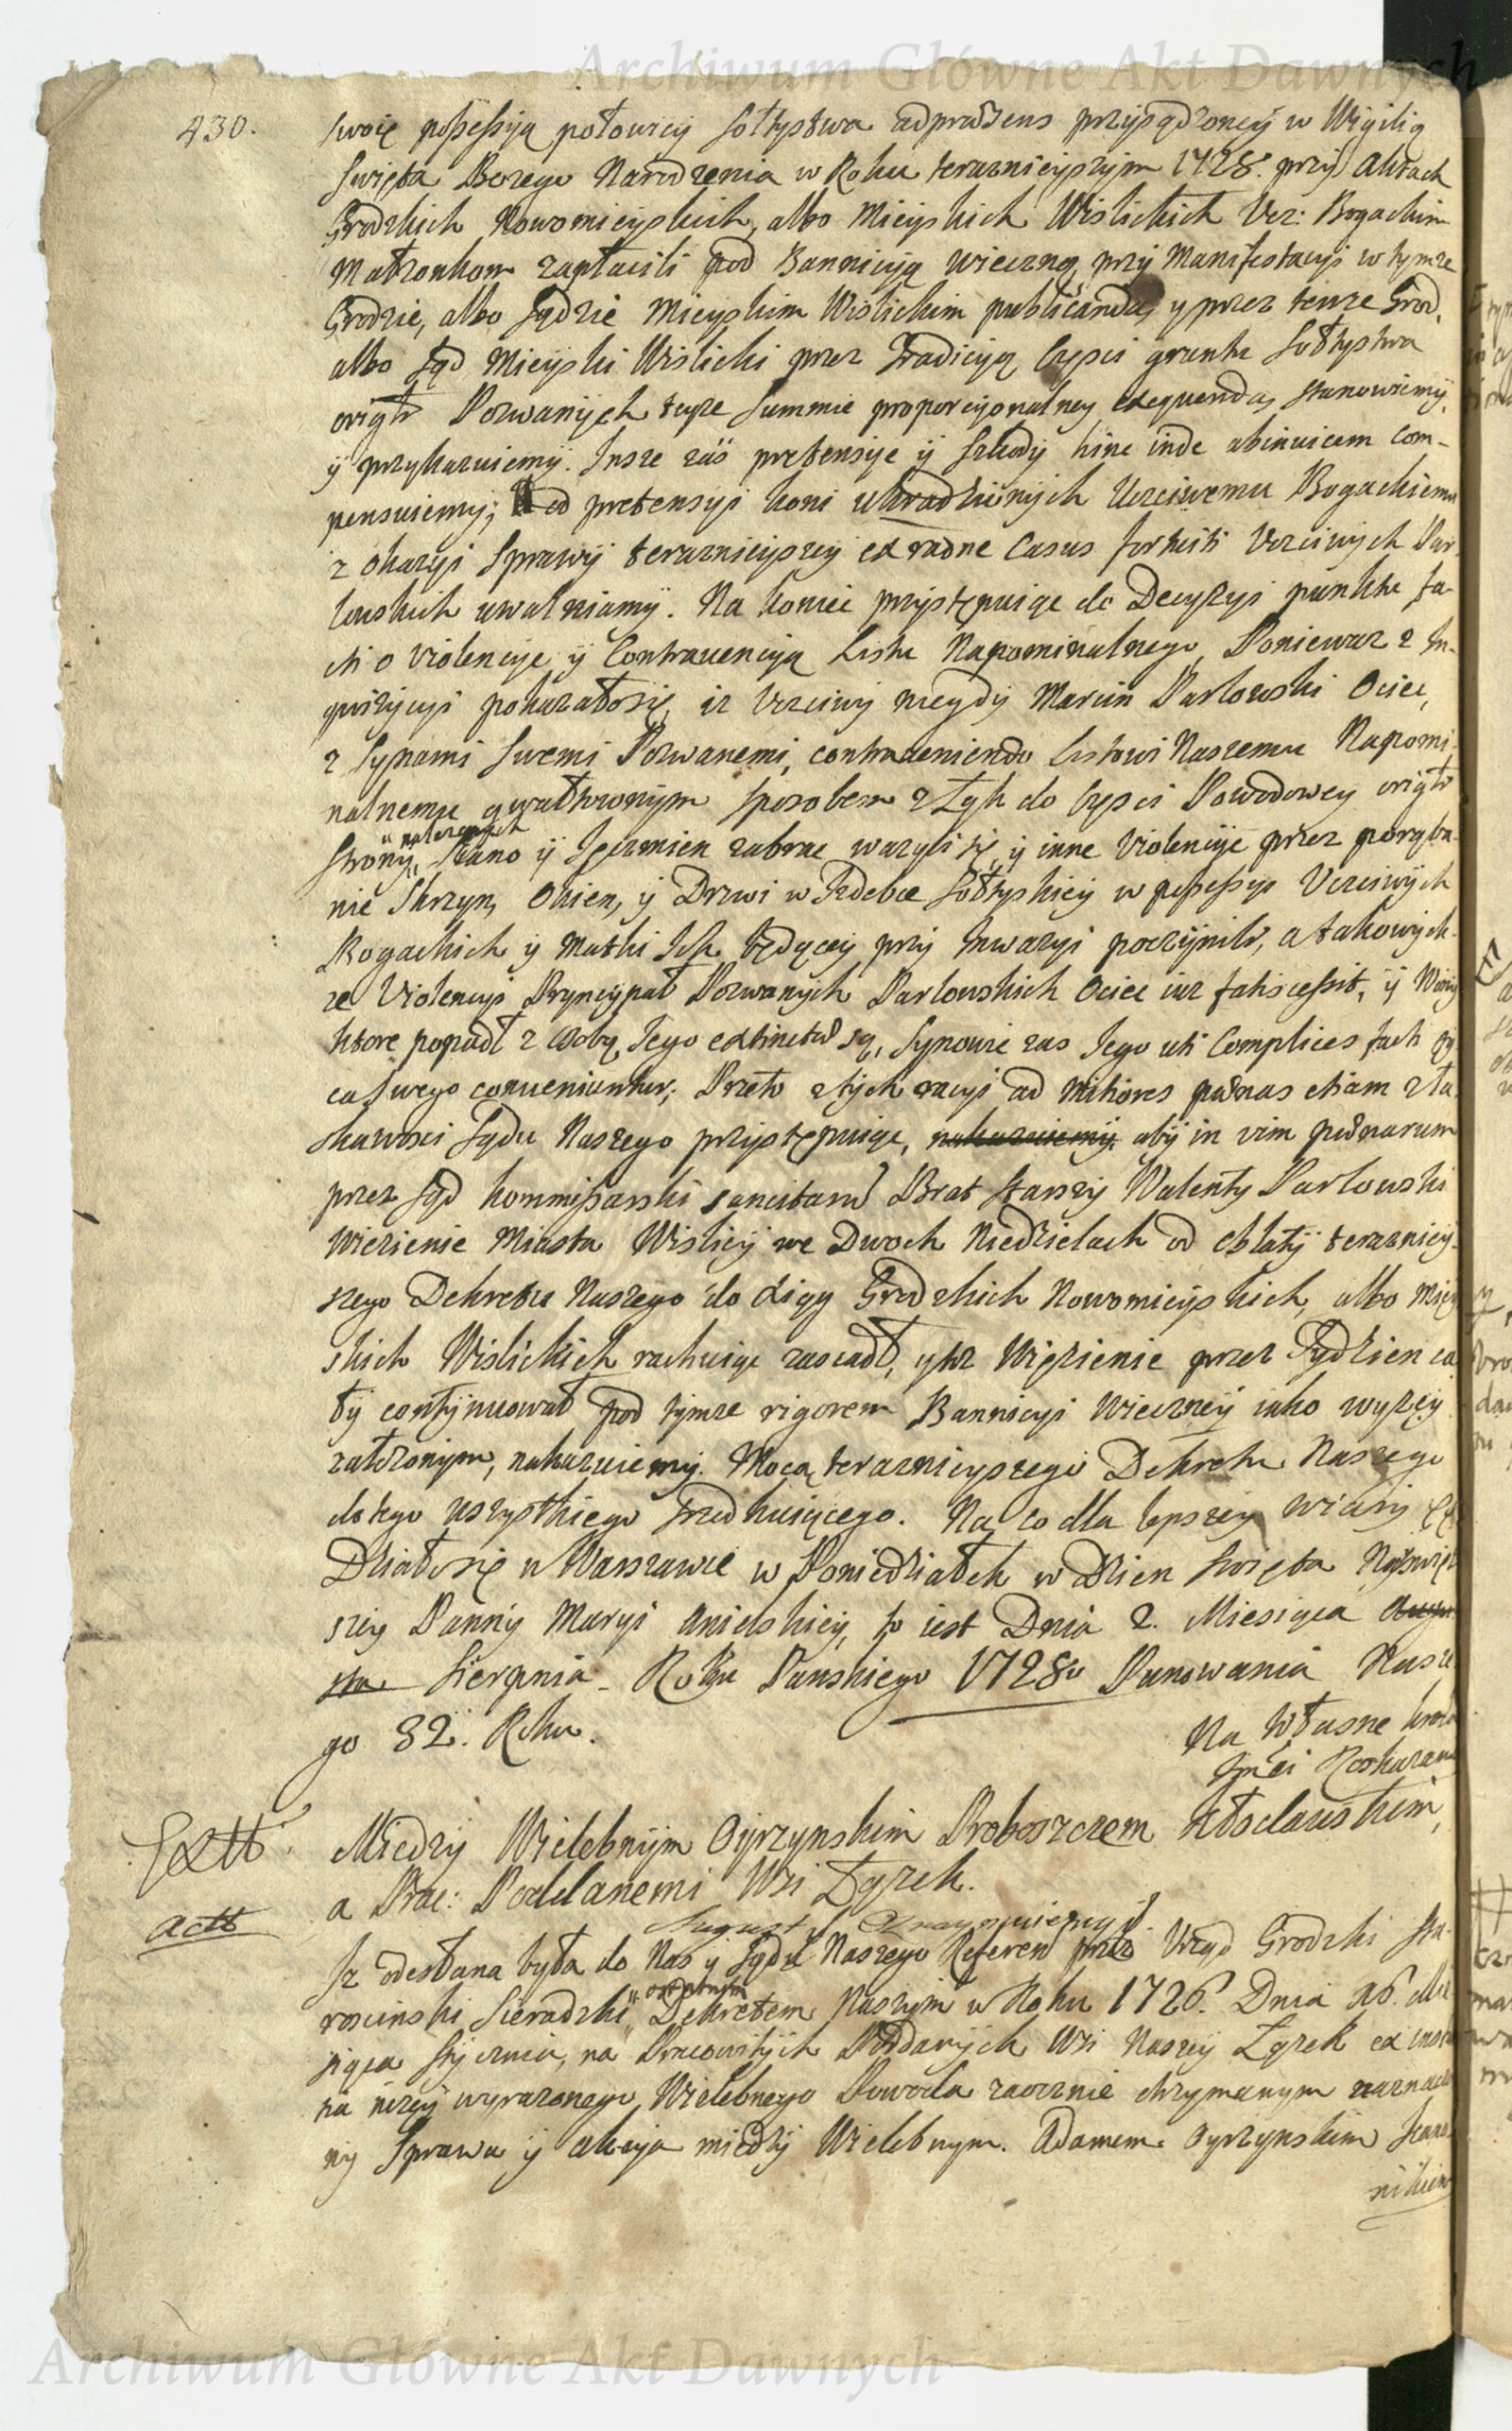 Archiwum Główne Akt Dawnych
430.
swoię possessyą połowicy Sołtystwa adpraesens przysądzoney w Wigilią
Swięta Bozego Narodzenia w Roku teraznieyszym 1728. przy Aktach
Grodzkich Nowomieyskich, albo Mieyskich Wislickich Ucz: Bogackim
Małzonkom zapłacili pod Bannicyą wieczną, przy Manifestacyi w tymze
Grodzie, albo Sądzie Mieyskim Wislickim publicanda, y przez tenze Grod,
albo Sąd Mieyski Wislicki przez Tradicyą Części gruntu Sołtystwa
origłr Pozwanych teyze Summie proporcyonalney exequenda, stanowiemy,
y przykazuiemy. Insze zaś pretensye y szkody hinc inde abinvicem com-
pensuiemy; od pretensyi koni ukradzionych Uczciwemu Bogackiemu
z okazyi Sprawy teraznieyszey ex radne Casus fortuiti Uczciwych Par-
lowskich uwalniamy. Na koniec przystępuiąc do Decyzyi punktu fa-
cti o violencye y Contravencyą Listu Napominalnego, Poniewaz z In-
quizycyi pokazałosię, iz Uczciwy niegdy Marcin Parlowski Ociec,
z Synami swemi Pozwanemi, contraveniendo Listowi Naszemu Napomi-
nalnemu gwałtownym sposobem z Łąk do części Powodowey origłr
Strony, należących Siano y Jęczmien zabrac wazyli się, y inne violencye przez porąba-
nie Skrzyn, Okien, y Drzwi w Izdebce Sołtyskiey w possessyi Uczciwych
Bogackich y Matki Ich będącey przy Inwazyi poczynili, a takowych-
ze Violencyi Pryncypał Pozwanych Parlowskich Ociec iuz fatis cessit, y Winy
ktore popadł z Osobą Jego extinctae są, Synowie zas Jego uti Complices facti Oy-
ca swego conveniuntur; Przeto z tych racyi ad mitiores paenas etiam z ła-
skawosci Sądu Naszego przystępuiąc, nakazuiemy, aby in vim paenarum
przez Sąd Kommissarski sancitarum Brat Starszy Walenty Parlowski
Wiezienie Miasta Wislicy we Dwoch Niedzielach od oblaty terazniey-
szego Dekretu Naszego do Xiąg Grodzkich Nowomieyskich, albo Miey-
skich Wislickich rachuiąc zasiadł, y to Więzienie przez Tydzien ca-
ły contynuował pod tymze rigorem Bannicyi Wieczney iako wyzey
załozonym, nakazuiemy. Mocą teraznieyszego Dekretu Naszego
do tego wszystkiego Sąd kuiącego. Na co dla lepszey wiary
Działosię w Warszawie w Poniedziałek w Dzien Swięta Nayswięt-
szey Panny Maryi Anielskiey, to iest Dnia 2. Miesiąca Augu-
sta Sierpnia Roku Panskiego 1728o Panowania Nasze-
go 32. Roku.
Na Własne
Roskazan
Miedzy Wielebnym Oyrzynskim Proboszczem
a Prac: Poddanemi Wsi Łązek.
Actb
August
Iz odesłana była do Nas y Sądu Naszego Referen przez Urząd Grodzki Sta-
roscinski Sieradzki Dekretem Naszym w Roku 1726. Dnia 16. Mie-
siąca Stycznia, na Pracowitych Poddanych Wsi Naszey Łązek ex instan
na nizey wyrazonego, Wielebnego Powoda zaocznie otrzymanym naznaczo-
ny Sprawa y akcya między Wielebnym Adamem Oyrzynskim Kano-
nikiem
Archiwum Główne Akt Dawnych